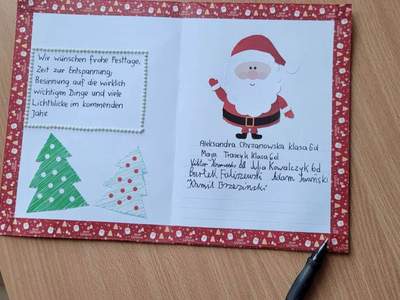 Wir wünschen frohe Festtage,
Zeit zur Entspannung,
Besinnung auf die wirklich
wichtigen Dinge und viele
Lichtblicke im kommenden
Jahr.
Aleksandra Chrzanowska klasa 6d
Maja klasa 6d
Wiktor 6d Julia Kowalczyk 6d
Bartek Faliszewski Adam Iwański
Kamil Brzeziński